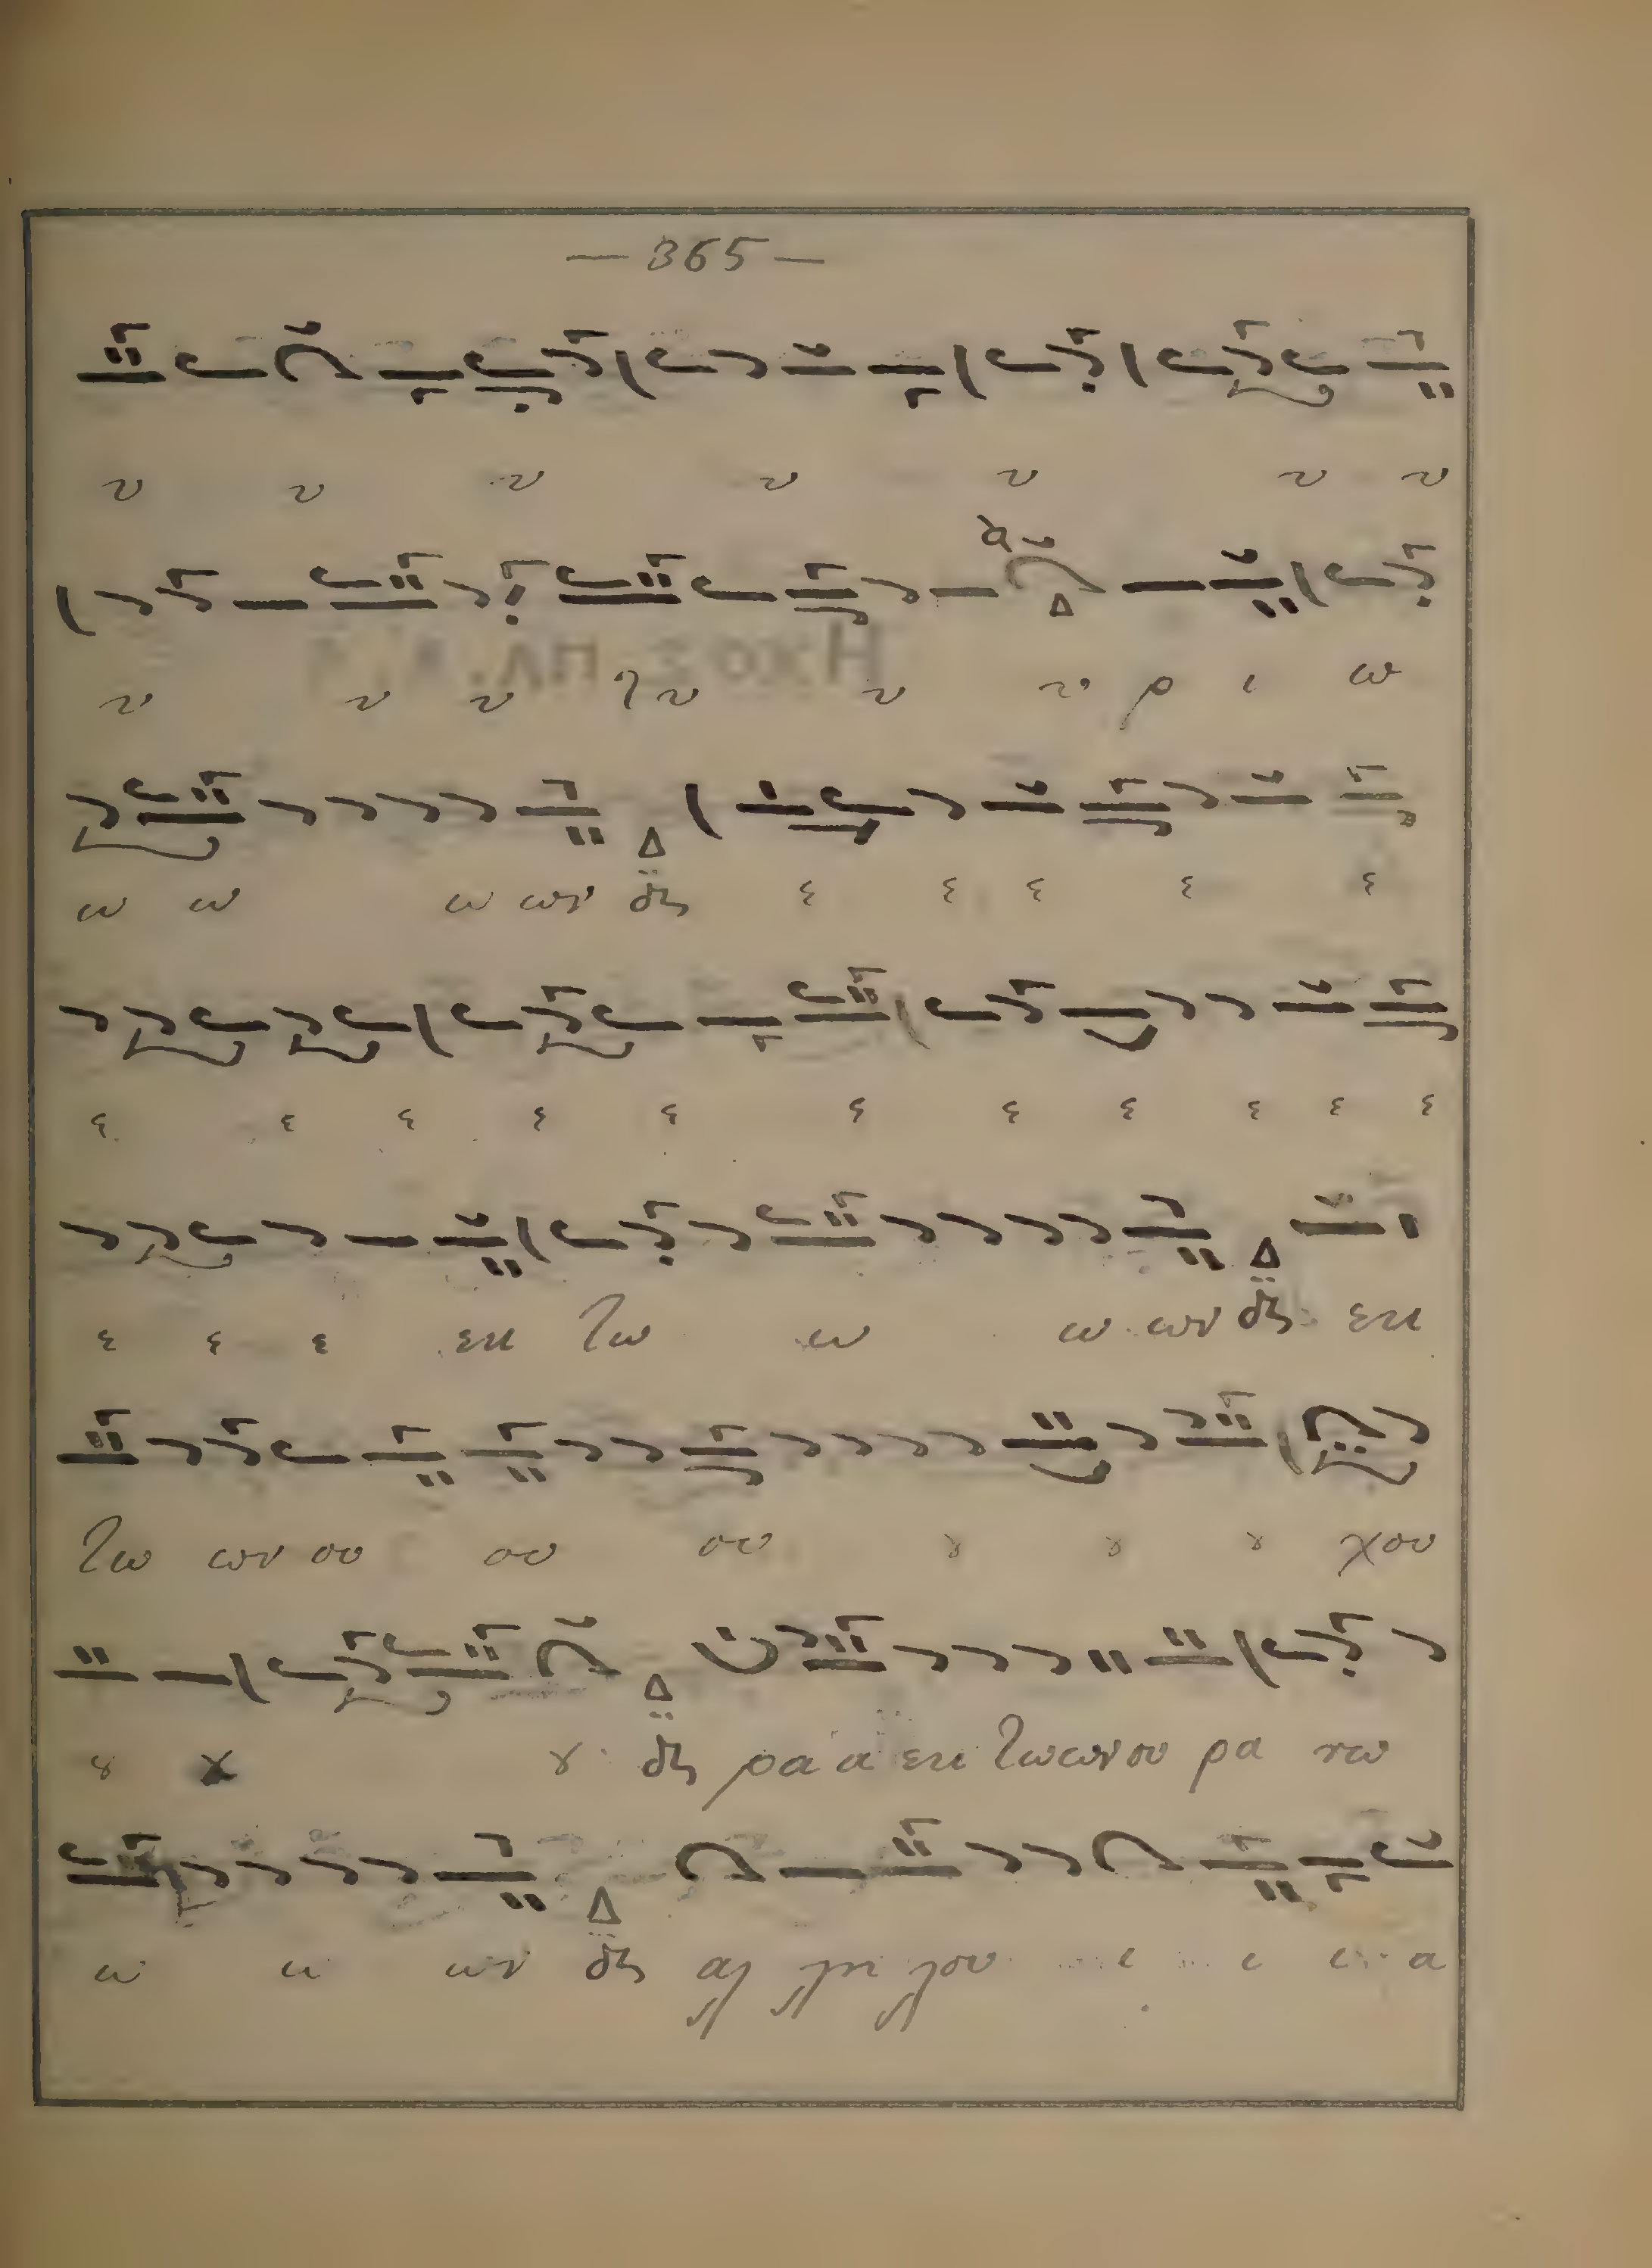 — 365 —
υ υ υ υ υ υ υ
υ υ υ τυ υ υ ρ ι ω
ω ω ω ων δι ε ε ε ε ε
ε ε ε ε ε ε ε ε ε ε ε
ε ε ε εκ τω ω ω ων δι εκ
τω ων ου ου ου ȣ ȣ ȣ χου
ȣ ȣ ȣ δι ρα α εκ τωωνου ρα νω
ω ω ων δι αλ λη λου ι ι ι α